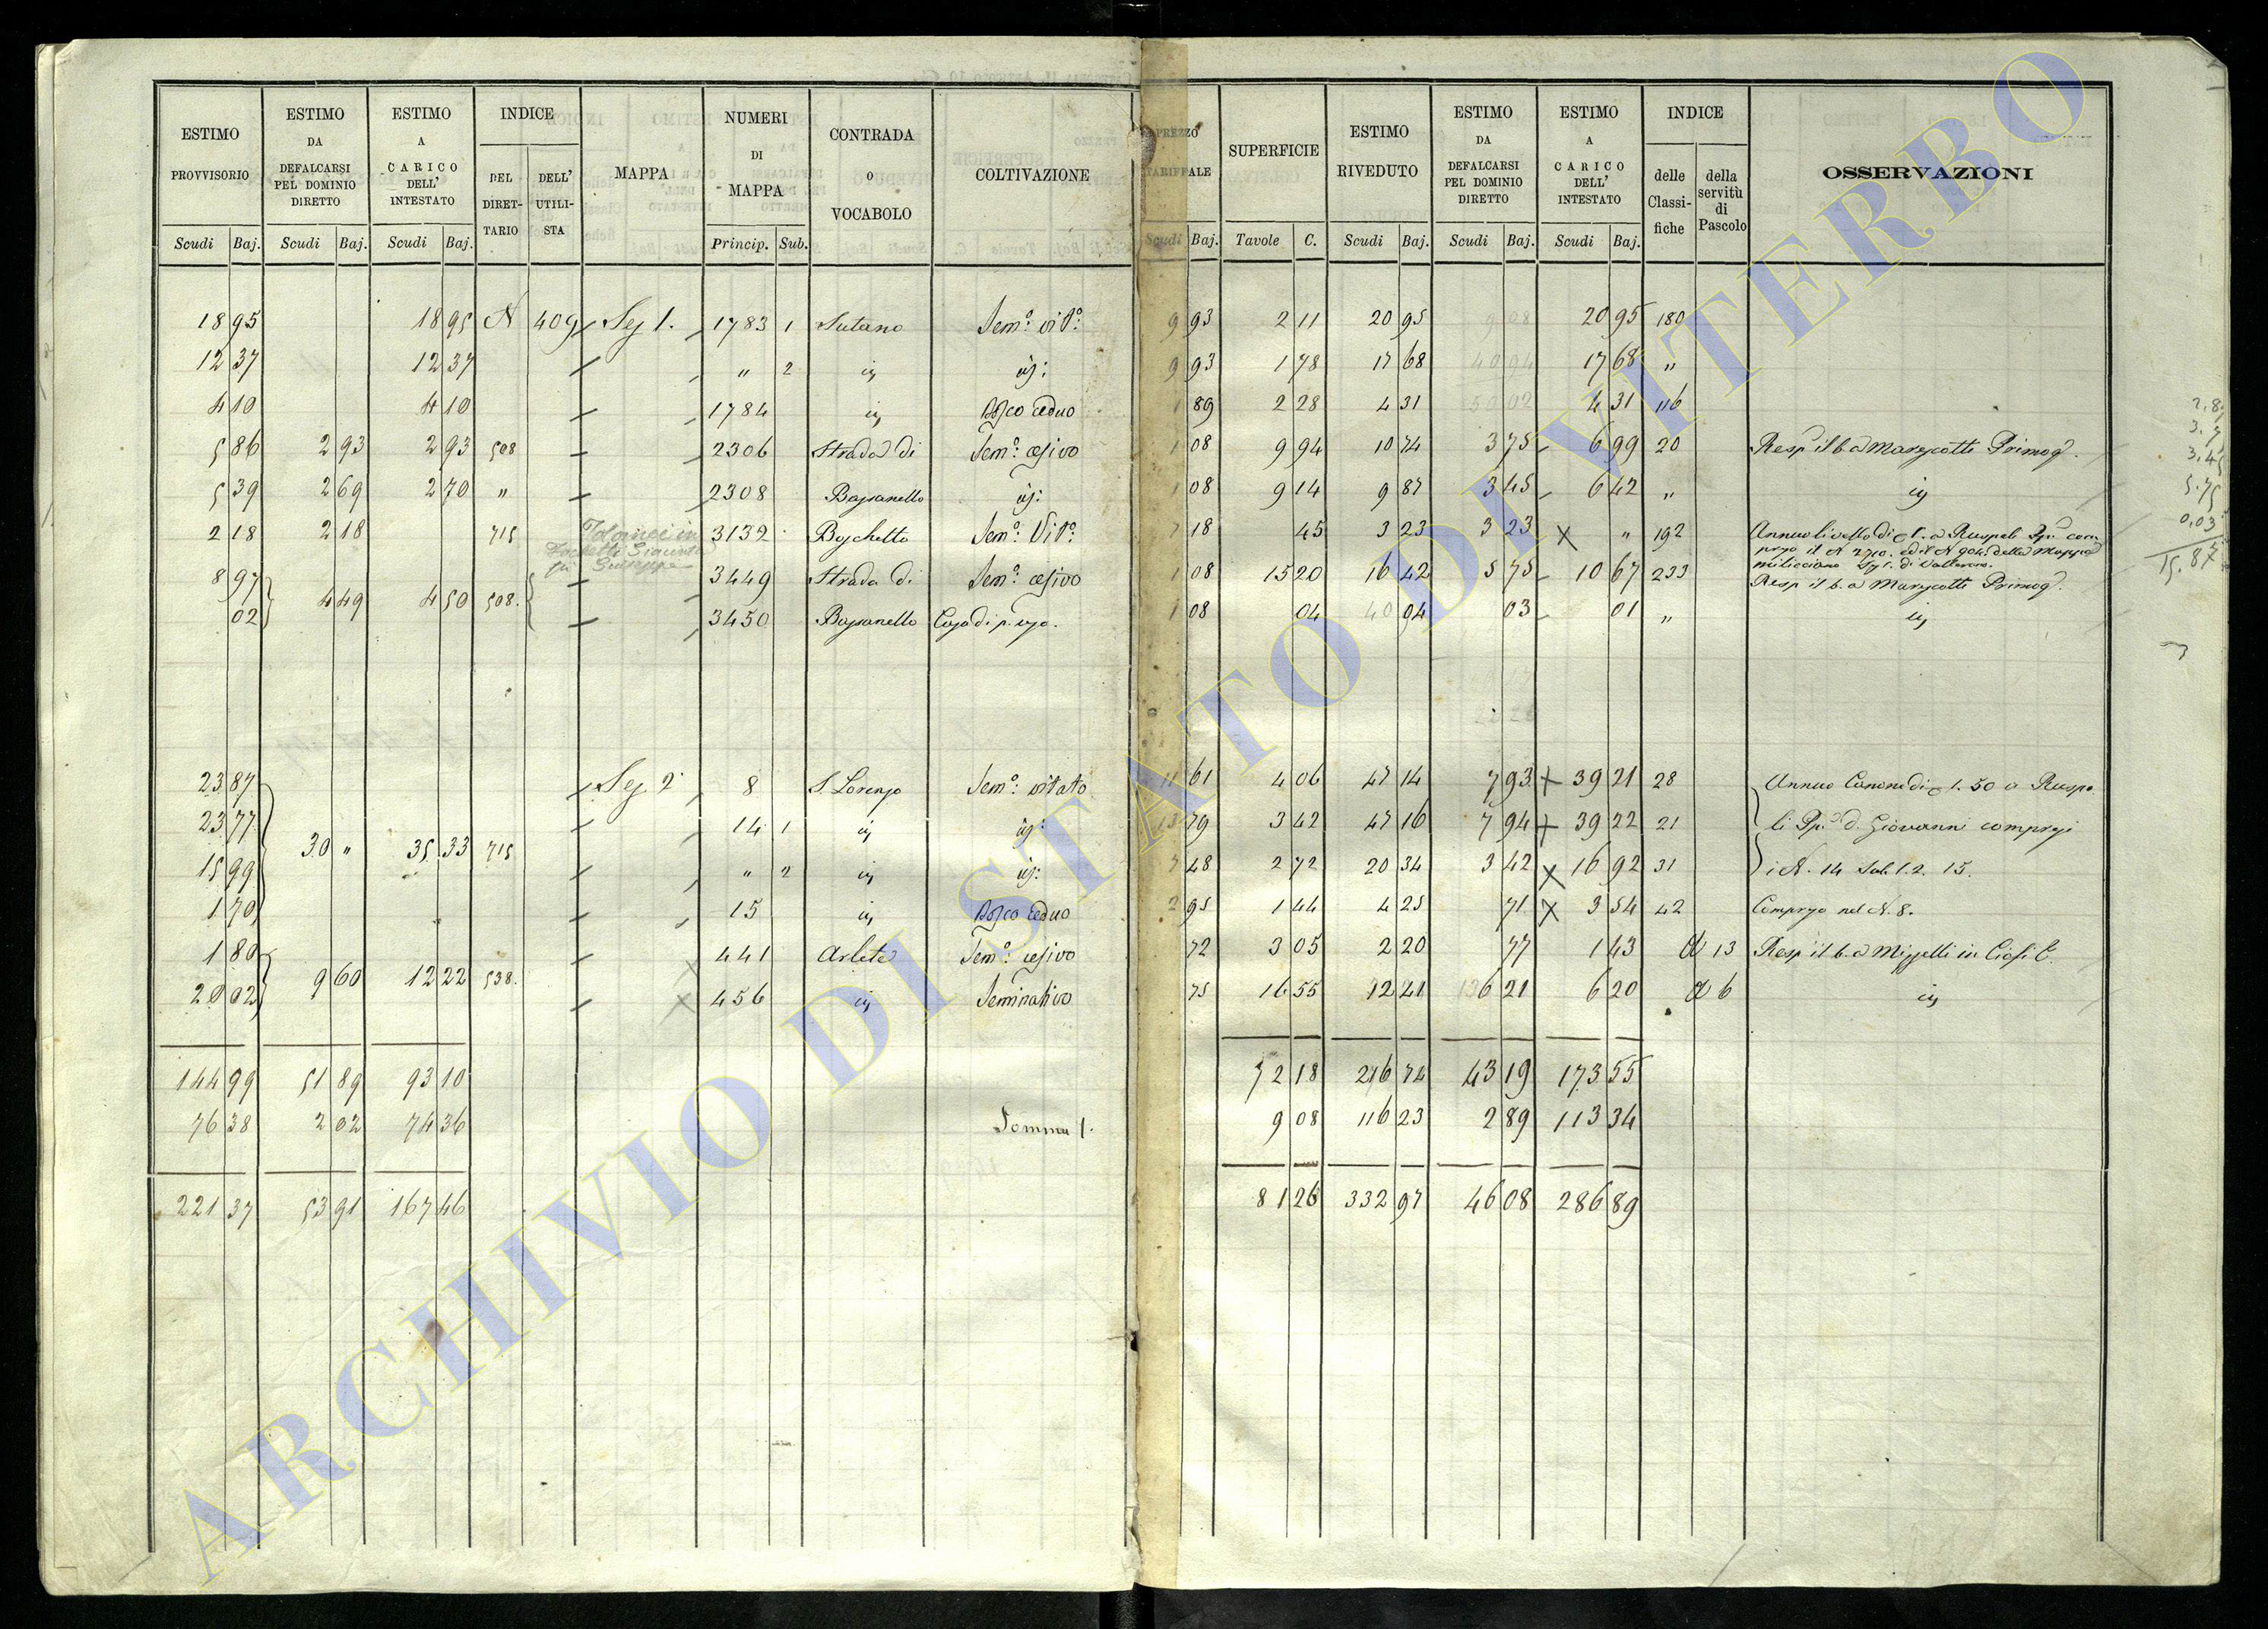 ESTIMO PROVVISORIO | ESTIMO DA DEFALCARSI PEL DOMINIO DIRETTO | ESTIMO A CARICO DELL' INTESTATO | INDICE DEL DIRETTARIO | DELL' UTILISTA | MAPPA | NUMERI DI MAPPA | CONTRADA O VOCABOLO | COLTIVAZIONE | PREZZO TARIFFALE | SUPERFICIE | ESTIMO RIVEDUTO | ESTIMO DA DEFALCARSI PEL DOMINIO DIRETTO | ESTIMO A CARICO DELL' INTESTATO | INDICE delle Classifiche | della servitù di Pascolo | OSSERVAZIONI
Scudi Baj. | Scudi Baj. | Scudi Baj. | Princip. Sub. | Scudi Baj. | Tavole C. | Scudi Baj. | Scudi Baj. | Scudi Baj.
18 95 | 18 95 | N | 409 | Sez 1. | 1783 1 | Sutano | Sem.º vit.º | 9 93 | 2 11 | 20 95 | 20 95 | 180
12 37 | 12 37 | " 2 | 9 93 | 1 78 | 17 68 | 17 68 | "
4 10 | 4 10 | 1784 | Bosco ceduo | 1 89 | 2 28 | 4 31 | 4 31 | 116
5 86 | 2 93 | 2 93 | 508 | 2306 | Strada di | Sem.º | 1 08 | 9 94 | 10 74 | 3 75 | 6 99 | 20 | Primog.
5 39 | 2 69 | 2 70 | " | 2308 | Bassanello | 1 08 | 9 14 | 9 87 | 3 45 | 6 42 | "
2 18 | 2 18 | 715 | 3132 | Boschetto | Sem.º Vit.º | 7 18 | 45 | 3 23 | 3 23 | " | 192 | Annuo livello di
8 97 | 3449 | Strada di | Sem.º | 1 08 | 15 20 | 16 42 | 5 75 | 10 67 | 233 | Primog.
02 | 4 49 | 4 50 | 508. | 3450 | Bassanello | Casa di p. uso. | 1 08 | 04 | 04 | 03 | 01 | "
23 87 | Sez 2 | 8 | S. Lorenzo | Sem.º vitato | 11 61 | 4 06 | 47 14 | 7 93 | 39 21 | 28 | Annuo Canone di 1. 50 a Ruspo
23 77 | 14 1 | 13 79 | 3 42 | 47 16 | 7 94 | 39 22 | 21 | li Pp. d. Giovanni compresi
30 " | 35 33 | 715
15 99 | " 2 | 7 48 | 2 72 | 20 34 | 3 42 | 16 92 | 31 | i N. 14 Sub. 1. 2. 15.
1 70 | 15 | Bosco ceduo | 2 95 | 1 44 | 4 25 | 71 | 3 54 | 42 | Compreso nel N. 8.
1 80 | 441 | Arlete | Sem.º | 72 | 3 05 | 2 20 | 77 | 1 43 | 13
20 02 | 9 60 | 12 22 | 538. | 456 | Seminativo | 75 | 16 55 | 12 41 | 6 21 | 6 20 | 6
144 99 | 51 89 | 93 10 | 72 18 | 216 74 | 43 19 | 173 55
76 38 | 2 02 | 74 36 | Somma 1. | 9 08 | 116 23 | 2 89 | 113 34
221 37 | 53 91 | 167 46 | 81 26 | 332 97 | 46 08 | 286 89
ARCHIVIO DI STATO DI VITERBO